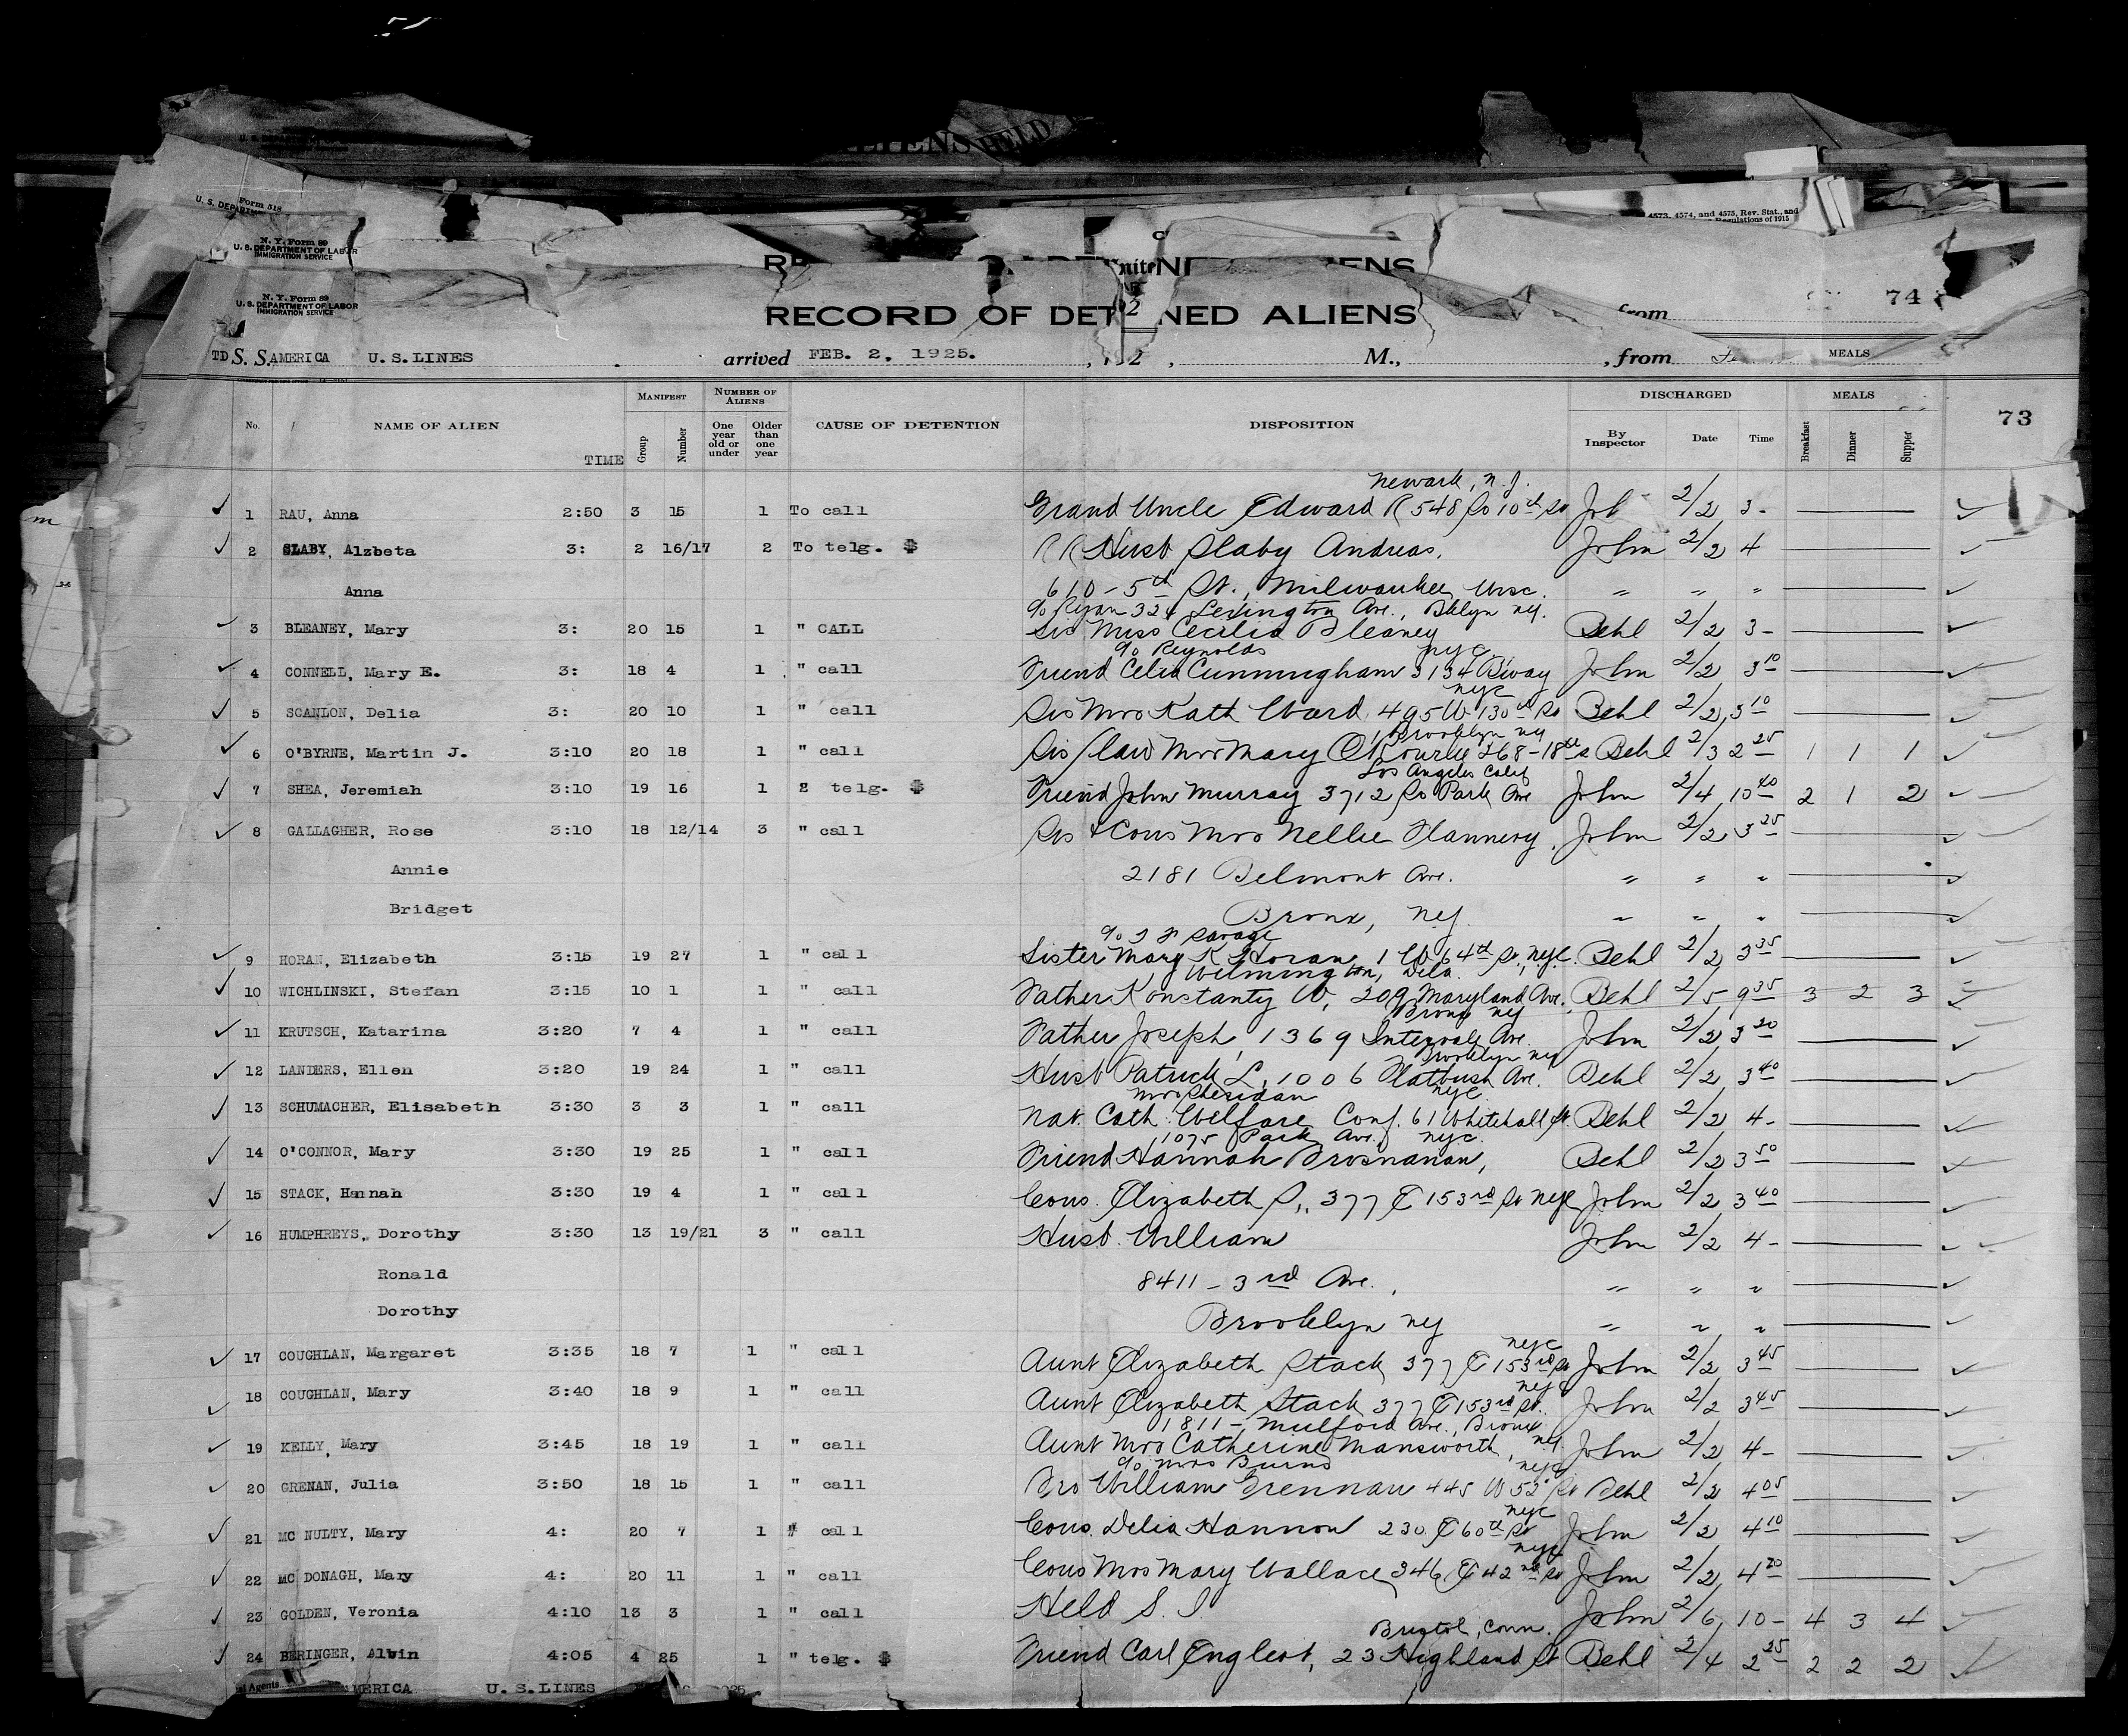 ALIENS HELD
Form 518
U. S. DEPARTMENT
4573, 4574, and 4575, Rev. Stat., and
Regulations of 1915
N. Y. Form 89
U. S. DEPARTMENT OF LABOR
IMMIGRATION SERVICE
74
from
N. Y. Form 89
U. S. DEPARTMENT OF LABOR
IMMIGRATION SERVICE
RECORD OF DETAINED ALIENS
TD S. S. AMERICA U.S.LINES arrived FEB. 2, 1925. , 192 , M., , from MEALS
No. NAME OF ALIEN TIME MANIFEST Group Number NUMBER OF ALIENS One year old or under Older than one year CAUSE OF DETENTION DISPOSITION DISCHARGED By Inspector Date Time MEALS Breakfast Dinner Supper 73
Newark, N.J.
1 RAU, Anna 2:50 3 15 1 To call Grand Uncle Edward R 548 So 10th St Joh 2/2 3-
2 SLABY, Alzbeta 3: 2 16/17 2 To telg. $ RR Husb Slaby Andreas. John 2/2 4
Anna 610-5th St., Milwaukee, Wisc. " " "
c/o Ryan 324 Lexington Ave., Bklyn ny.
3 BLEANEY, Mary 3: 20 15 1 " CALL Sis Miss Cecilia Bleaney Behl 2/2 3-
c/o Reynolds nyc
4 CONNELL, Mary E. 3: 18 4 1 " call Friend Celia Cunningham 3134 Bway John 2/2 3 10
nyc
5 SCANLON, Delia 3: 20 10 1 " call Sis Mrs Kath Ward 495 W 130th St Behl 2/2 3 10
Brooklyn ny
6 O'BYRNE, Martin J. 3:10 20 18 1 " call Sis/law Mrs Mary O'Rourke 268-18th s Behl 2/3 2 25 1 1 1
Los Angeles Calif
7 SHEA, Jeremiah 3:10 19 16 1 2 telg. $ Friend John Murray 3712 So Park Ave John 2/4 10 40 2 1 2
8 GALLAGHER, Rose 3:10 18 12/14 3 " call Sis & Cous Mrs Nellie Flannery, John 2/2 3 25
Annie 2181 Belmont Ave. " " "
Bridget Bronx, ny " " "
c/o J F Savage
9 HORAN, Elizabeth 3:15 19 27 1 " call Sister Mary K Horan 1 W 64th St, nyc. Behl 2/2 3 35
Wilmington, Dela.
10 WICHLINSKI, Stefan 3:15 10 1 1 " call Father Konstanty W, 209 Maryland Ave. Behl 2/5 9 35 3 2 3
Bronx ny
11 KRUTSCH, Katarina 3:20 7 4 1 " call Father Joseph, 1369 Intervale Ave. John 2/2 3 20
Brooklyn ny
12 LANDERS, Ellen 3:20 19 24 1 " call Husb Patrick L, 1006 Flatbush Ave. Behl 2/2 3 40
Mrs Sheridan nyc
13 SCHUMACHER, Elisabeth 3:30 3 3 1 " call Nat. Cath. Welfare Conf. 61 Whitehall St. Behl 2/2 4-
1075 Park Ave. nyc.
14 O'CONNOR, Mary 3:30 19 25 1 " call Friend Hannah Brosnanan, Behl 2/2 3 50
15 STACK, Hannah 3:30 19 4 1 " call Cous. Elizabeth S., 377 E 153rd St nyc John 2/2 3 40
16 HUMPHREYS, Dorothy 3:30 13 19/21 3 " call Husb. William John 2/2 4-
Ronald 8411-3rd Ave., " " "
Dorothy Brooklyn ny " " "
nyc
17 COUGHLAN, Margaret 3:35 18 7 1 " call Aunt Elizabeth Stack 377 E 153rd St John 2/2 3 45
nyc
18 COUGHLAN, Mary 3:40 18 9 1 " call Aunt Elizabeth Stack 377 E 153rd St. John 2/2 3 45
1811-Mulford Ave., Bronx
19 KELLY, Mary 3:45 18 19 1 " call Aunt Mrs Catherine Mansworth, ny. John 2/2 4-
c/o Mrs Burns nyc
20 GRENAN, Julia 3:50 18 15 1 " call Bro William Grennan 445 W 52 St Behl 2/2 4 05
nyc
21 MC NULTY, Mary 4: 20 7 1 " call Cous. Delia Hannon 230 E 60th St John 2/2 4 10
nyc
22 MC DONAGH, Mary 4: 20 11 1 " call Cous Mrs Mary Wallace 346 E 42nd St John 2/2 4 20
23 GOLDEN, Veronia 4:10 13 3 1 " call Held S. I John 2/6 10- 4 3 4
Bristol, Conn.
24 BERINGER, Alvin 4:05 4 25 1 " telg. $ Friend Carl Englert, 23 Highland St Behl 2/4 2 25 2 2 2
al Agents MERICA U.S.LINES